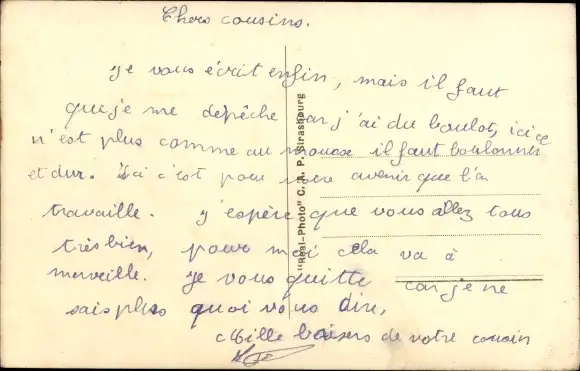 Chers cousins.
Je vous écrit enfin, mais il faut
que je me dépêche car j'ai du boulot, ici ce
n'est plus comme au il faut boulonner
et dur. Ici c'est pour notre avenir que l'on
travaille. J'espère que vous allez tous
très bien, pour moi cela va à
merveille. Je vous quitte car je ne
sais plus quoi vous dire,
Mille baisers de votre cousin
"Real-Photo" C. A. P. Strasbourg